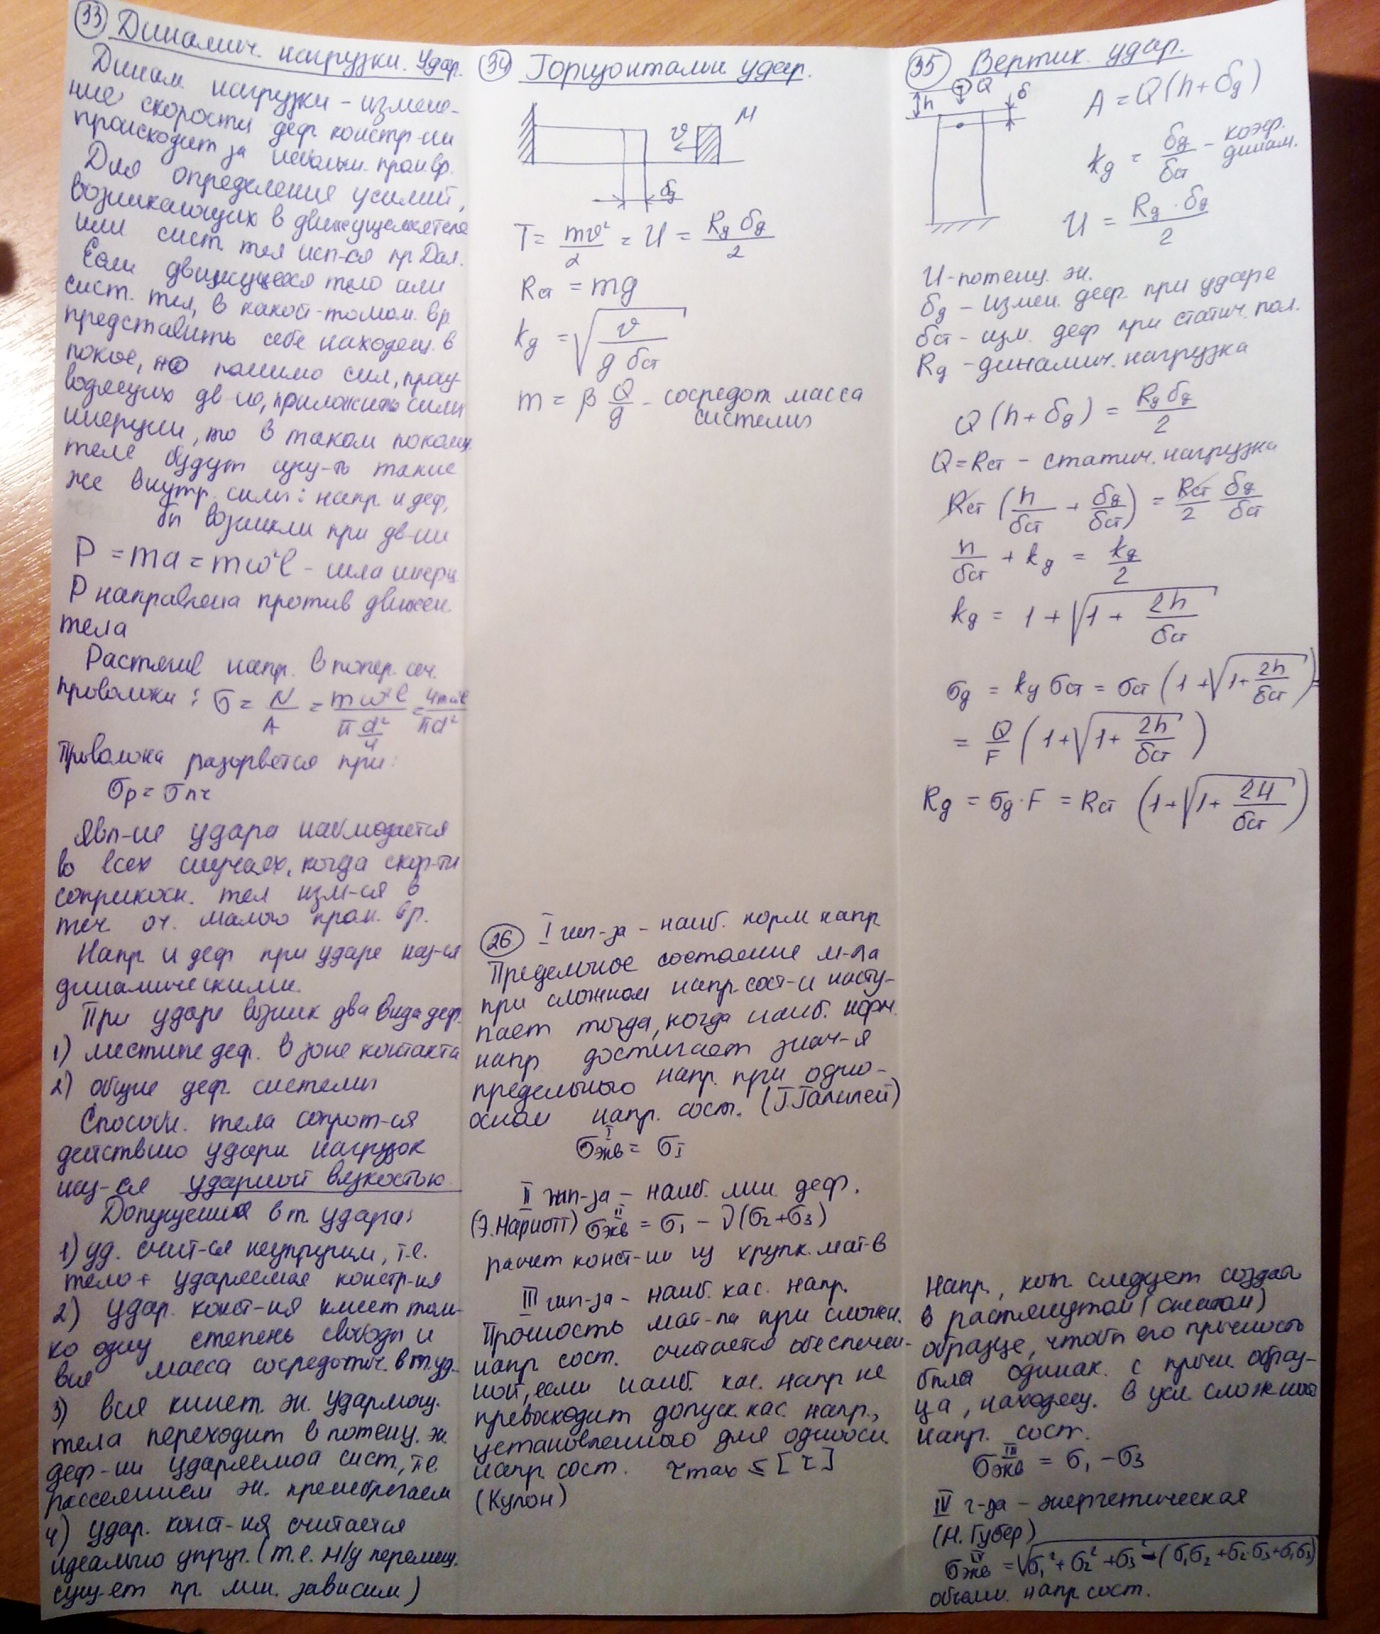 33 Динамич. нагрузки. Удар.
Динам нагрузки - измене-
ние скорости деф. констр-ии
происходит за небольш. пром.вр.
Для определения усилий,
возникающих в движущемся теле
или сист. тел исп-ся пр Дал.
Если движущееся тело или
сист. тел, в какой-томом. вр
представить себе находящ. в
покое, но помимо сил, прои-
водящих дв-ю, приложить силы
инерции, то в таком покоящ.
теле будут сущ-ть такие
же внутр. силы: напр. и деф,
бы возникли при дв-ии
P = ma = mω²l - сила инерц
P направлена против движен.
тела
Растягив напр. в попер. сеч.
проволоки: σ = N/A = mω²l/(πd²/4) = 4mω²l/πd²
Проволока разорвется при:
σр = σпч
Явл-ие удара наблюдается
во всех случаях, когда скор-ти
соприкосн. тел изм-ся в
теч. оч. малого пром. вр.
Напр. и деф при ударе наз-ся
динамическими.
При ударе возник два вида деф.
1) местные деф. в зоне контакта
2) общие деф. системы
Способн. тела сопрот-ся
действию ударн нагрузок
наз-ся ударной вязкостью
Допущения в т. удара:
1) уд. счит-ся неупругим, т.е.
тело + ударяемая констр-ия
2) удар. конст-ия имеет толь-
ко одну степень свободы и
вся масса сосредоточ. в т.уд.
3) вся кинет. эн. ударяющ.
тела переходит в потенц. эн
деф-ии ударяемой сист, т.е
рассеянием эн. пренебрегаем
4) удар. конст-ия считается
идеально упруг. (т.е. м/у перемещ.
сущ-ет пр. лин. зависим)
34 Горизонтальн удар.
M
υ
δд
T = mυ²/2 = U = Rд δд/2
Rст = mg
kд = √(υ/(g δст))
m = β Q/g - сосредот масса
системы
26 I гип-за - наиб. норм напр
Предельное состояние м-ла
при сложном напр. сост-и насту-
пает тогда, когда наиб. норм.
напр достигает знач-я
предельного напр. при одно-
осном напр. сост. (Г Галилей)
σэквᴵ = σI
II гип-за - наиб. лин. деф.
(Э.Мариотт) σэквᴵᴵ = σ1 - ν(σ2+σ3)
расчет конст-ии из хрупк. мат-в
III гип-за - наиб. кас. напр.
Прочность мат-ла при сложн.
напр сост. считается обеспечен-
ной, если наиб. кас. напр не
превосходит допуск. кас. напр.,
установленного для одноосн
напр сост. τmax ≤ [τ]
(Кулон)
35 Вертик. удар.
h Q δ
A = Q(h + δд)
kд = δд/δст - коэф. динам.
U = Rд · δд/2
U - потенц. эн.
δд - измен. деф. при ударе
δст - изм. деф при статич. пол.
Rд - динамич. нагрузка
Q(h + δд) = Rд δд/2
Q = Rст - статич. нагрузка
Rст (h/δст + δд/δст) = Rст/2 δд/δст
h/δст + kд = kд/2
kд = 1 + √(1 + 2h/δст)
σд = kд σст = σст (1 + √(1 + 2h/δст)) =
= Q/F (1 + √(1 + 2h/δст))
Rд = σд · F = Rст (1 + √(1 + 2H/δст))
Напр, кот. следует создать
в растянутом (сжатом)
образце, чтобы его прочность
была одинак. с прочн образ-
ца, находящ. в усл. сложного
напр. сост.
σэквᴵᴵᴵ = σ1 - σ3
IV г-за - энергетическая
(Н. Губер)
σэквᴵⱽ = √(σ1² + σ2² + σ3² - (σ1σ2 + σ2·σ3 + σ1σ3))
объемн. напр сост.